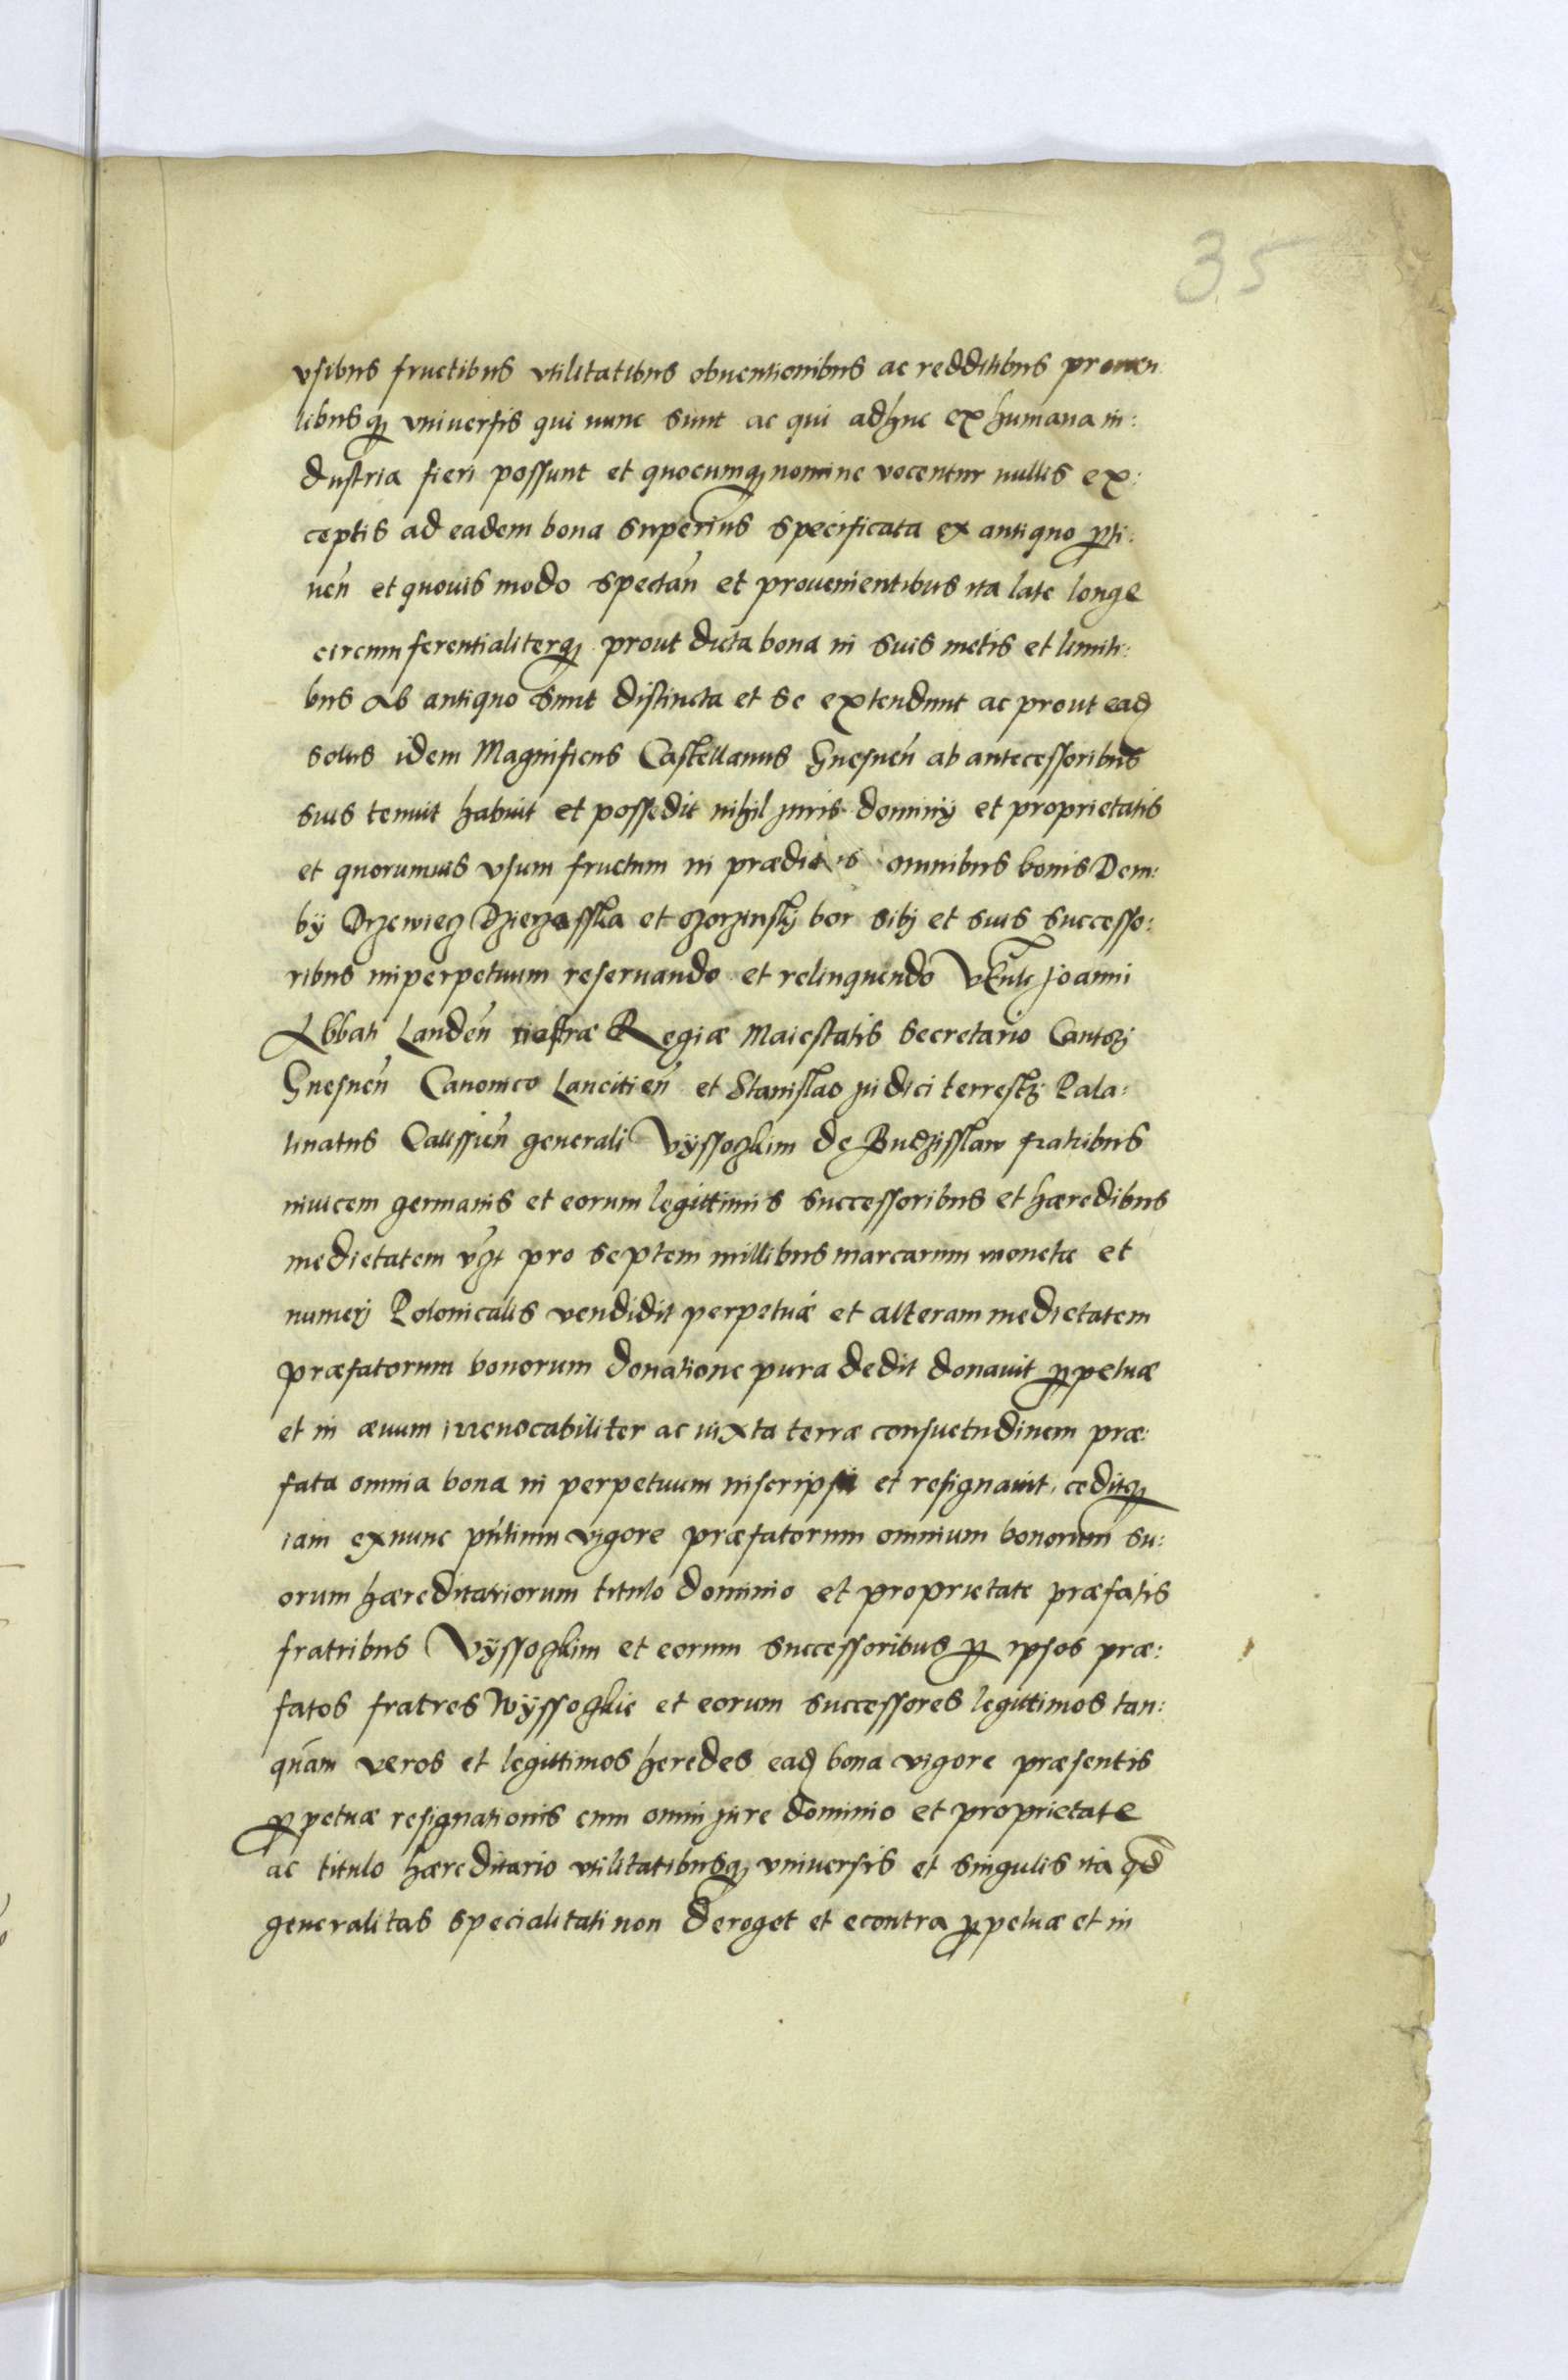 35
vsibus fructibus vtilitatibus obuentionibus ac redditibus prouen:
tibusq; vniuersis qui nunc sunt ac qui adhuc ex humana in:
dustria fieri possunt et quocumq; nomine vocentur nullis ex:
ceptis ad eadem bona superius specificata ex antiquo p̲ti:
neñ et quouis modo spectañ et prouenientibus ita late longe
circumferentialiterq; prout dicta bona in suis metis et limiti:
bus Ab antiquo sunt distincta et se extendunt ac prout ead
solus idem Magnificus Castellanus Gnesneñ ab antecessoribus
suis tenuit habuit et possedit nihil juris dominij et proprietatis
et quorumuis vsum fructum in prædictis omnibus bonis Dem:
by Drzewiecz et bor sibj et suis successo:
ribus inperpetuum reseruando et relinquendo Joanni
Abbati Landeñ nostræ Regiæ Maiestatis Secretario Cantorj
Gnesneñ Canonico Lanciticeñ et Stanislao judici terrestrj Pala:
tinatus Calissieñ generali Vÿssoczkim de Budzisslaw fratribus
inuicem germanis et eorum legittimis successoribus et hæredibus
medietatem vꝫt pro septem millibus marcarum monetæ et
numerj Polonicalis vendidit perpetuæ et alteram medietatem
præfatorum bonorum donatione pura dedit donauit p̲petuæ
et in æuum irreuocabiliter ac iuxta terræ consuetudinem præ:
fata omnia bona in perpetuum inscripsit et resignauit, ceditq;
iam exnunc pñtium vigore præfatorum omnium bonorum su:
orum hæreditariorum titulo dominio et proprietate præfatis
fratribus Vÿssoczkim et eorum successoribus p̲ ipsos præ:
fatos fratres Wÿssoczkie et eorum successores legittimos tan:
quam veros et legittimos heredes ead bona vigore præsentis
p̲petuæ resignationis cum omni jure dominio et proprietate
ac titulo hæreditario vtilitatibusq; vniuersis et singulis ita qd
generalitas specialitati non deroget et econtra p̲petuæ et in